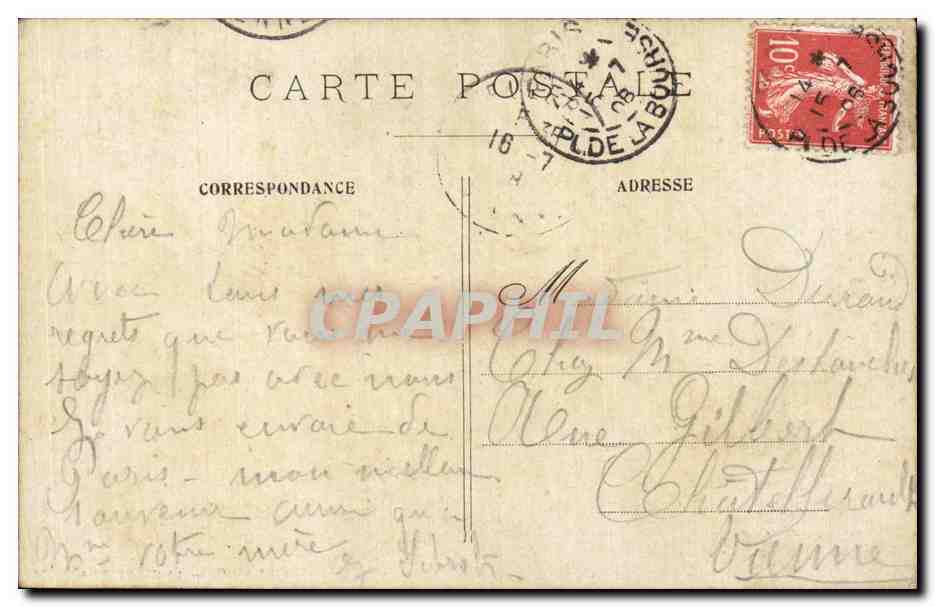 CARTE POSTALE
PARIS
PL. DE LA BOURSE
15 -7 08
16 -7
10c
POSTES
CORRESPONDANCE
ADRESSE
Chère Madame
Avec tous mes
regrets que vous ne
soyez pas avec nous
Je vous envoie de
Paris - mon meilleur
souvenir ainsi qu'a
Mme votre mère
Madame Durand
Chez Mme
Rue Gilbert
Châtellerault
Vienne
CPAPHIL